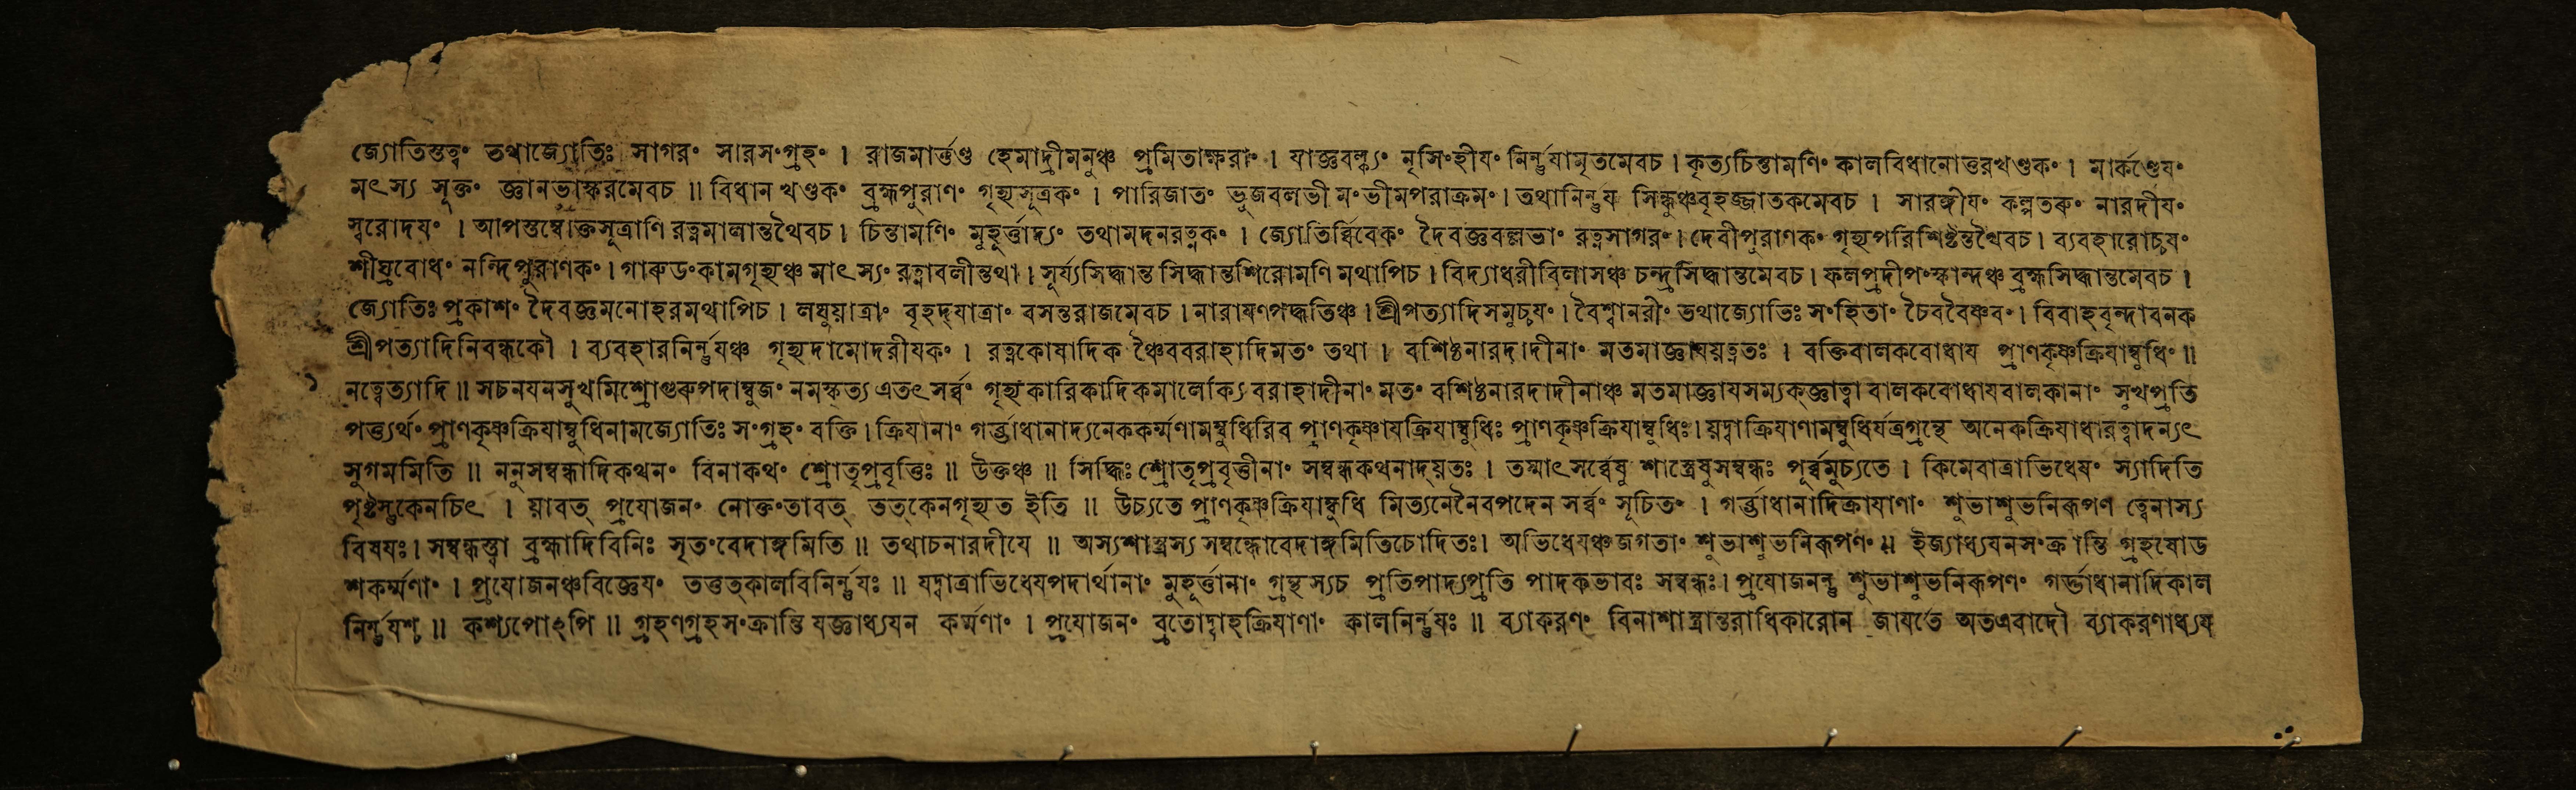 জ্যোতিস্তত্বং তথাজ্যোতিঃ সাগরং সারসংগ্রহং । রাজমার্ত্তণ্ড হেমাদ্রীমনুঞ্চ প্রমিতাক্ষরাং । যাজ্ঞবল্ক্যং নৃসিংহীযং নির্ন্নযামৃতমেবচ । কৃত্যচিন্তামণিং কালবিধানোত্তরখণ্ডকং । মার্কণ্ডেযং
মৎস্য সূক্তং জ্ঞানভাস্করমেবচ ॥ বিধান খণ্ডকং ব্রহ্মপুরাণং গৃহ্যসূত্রকং । পারিজাতং ভুজবলভীমংভীমপরাক্রমং । তথানির্ন্নয সিন্ধুঞ্চবৃহজ্জাতকমেবচ । সারঙ্গীযং কল্পতরুং নারদীযং
স্বরোদযং । আপস্তম্বোক্তসূত্রাণি রত্নমালান্তথৈবচ । চিন্তামণিং মুহূর্ত্তাদ্যং তথামদনরত্নকং । জ্যোতির্ব্বিবেকং দৈবজ্ঞবল্লভাং রত্নসাগরং । দেবীপুরাণকং গৃহ্যপরিশিষ্টন্তথৈবচ । ব্যবহারোচ্চযং
শীঘ্রবোধং নন্দিপুরাণকং । গারুডংকামগৃহ্যঞ্চ মাৎস্যং রত্নাবলীন্তথা । সূর্য্যসিদ্ধান্ত সিদ্ধান্তশিরোমণি মথাপিচ । বিদ্যাধরীবিলাসঞ্চ চন্দ্রসিদ্ধান্তমেবচ । ফলপ্রদীপংস্কান্দঞ্চ ব্রহ্মসিদ্ধান্তমেবচ ।
জ্যোতিঃ প্রকাশং দৈবজ্ঞমনোহরমথাপিচ । লঘুয়াত্রাং বৃহদ্যাত্রাং বসন্তরাজমেবচ । নারাযণপদ্ধতিঞ্চ । শ্রীপত্যাদিসমুচ্চযং । বৈশ্বানরীং তথাজ্যোতিঃ সংহিতাং চৈববৈষ্ণবং । বিবাহবৃন্দাবনক
শ্রীপত্যাদিনিবন্ধকৌ । ব্যবহারনির্ন্নযঞ্চ গৃহ্যদামোদরীযকং । রত্নকোষাদিক ঞ্চৈববরাহাদিমতং তথা । বশিষ্ঠনারদাদীনাং মতমাজ্ঞাযয়ত্নতঃ । বক্তিবালকবোধায প্রাণকৃষ্ণক্রিযাম্বুধিং ॥
নত্বেত্যাদি ॥ সচনযনসুখমিশ্রোগুরুপদাম্বুজং নমস্কৃত্য এতৎসর্ব্বং গৃহ্যকারিকাদিকমালোক্য বরাহাদীনাং মতং বশিষ্ঠনারদাদীনাঞ্চ মতমাজ্ঞাযসম্যক্জ্ঞাত্বা বালকবোধাযবালকানাং সুখপ্রতি
পত্ত্যর্থং প্রাণকৃষ্ণক্রিযাম্বুধিনামজ্যোতিঃ সংগ্রহং বক্তি । ক্রিযানাং গর্ব্ভাধানাদ্যনেককর্ম্মণামম্বুধিরিব প্রাণকৃষ্ণাযক্রিযাম্বুধিঃ প্রাণকৃষ্ণক্রিযাম্বুধিঃ । য়দ্বাক্রিযাণামম্বুধির্যত্রগ্রন্থে অনেকক্রিযাধারত্বাদন্যৎ
সুগমমিতি ॥ ননুসম্বন্ধাদিকথনং বিনাকথং শ্রোতৃপ্রবৃত্তিঃ ॥ উক্তঞ্চ ॥ সিদ্ধিঃ শ্রোতৃপ্রবৃত্তীনাং সম্বন্ধকথনাদ্য়তঃ । তস্মাৎ সর্ব্বেষু শাস্ত্রেষুসম্বন্ধঃ পূর্ব্বমুচ্যতে । কিমেবাত্রাভিধেযং স্যাদিতি
পৃষ্টস্তুকেনচিৎ । য়াবত্ প্রযোজনং নোক্তংতাবত্ তত্কেনগৃহ্যত ইতি ॥ উচ্যতে প্রাণকৃষ্ণক্রিযাম্বুধি মিত্যনেনৈবপদেন সর্ব্বং সূচিতং । গর্ব্ভাধানাদিক্রাযাণাং শুভাশুভনিরূপণ ত্বেনাস্য
বিষযঃ । সম্বন্ধস্ত্বা ব্রহ্মাদিবিনিঃ সৃতংবেদাঙ্গমিতি ॥ তথাচনারদীযে ॥ অস্যশাস্ত্রস্য সম্বন্ধোবেদাঙ্গমিতিচোদিতঃ । অভিধেযঞ্চজগতাং শুভাশুভনিরূপণং ॥ ইজ্যাধ্যযনসংক্রান্তি গ্রহষোড
শকর্ম্মণাং । প্রযোজনঞ্চবিজ্ঞেযং তত্তত্কালবিনির্ন্নযঃ ॥ যদ্বাত্রাভিধেযপদার্থানাং মুহূর্ত্তানাং গ্রন্থস্যচ প্রতিপাদ্যপ্রতি পাদকভাবঃ সম্বন্ধঃ । প্রযোজনন্তু শুভাশুভনিরূপণং গর্ব্ভাধানাদিকাল
নির্ন্নযশ্চ ॥ কশ্যপোঽপি ॥ গ্রহণগ্রহসংক্রান্তি যজ্ঞাধ্যযন কর্ম্মণাং । প্রযোজনং ব্রতোদ্বাহক্রিযাণাং কালনির্ন্নযঃ ॥ ব্যাকরণং বিনাশাস্ত্রান্তরাধিকারোন জাযতে অতএবাদৌ ব্যাকরণাধ্যয